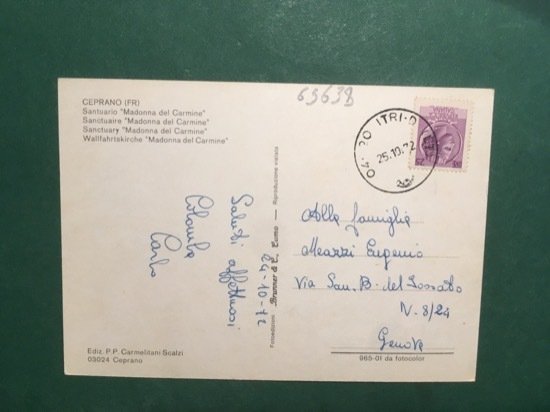 CEPRANO (FR)
Santuario "Madonna del Carmine"
Sanctuaire "Madonna del Carmine"
Sanctuary "Madonna del Carmine"
Wallfahrtskirche "Madonna del Carmine"
63638
04020 ITRI
25.10.72
Saluti affettuosi
Colomba
Carlo
24-10-72
Fotoedizioni Brunner & C., Como — Riproduzione vietata
Alla famiglia
Meazzi Eugenio
Via San. B. del Fossato
N. 8/24
Genova
Ediz. P.P. Carmelitani Scalzi
03024 Ceprano
965-01 da fotocolor